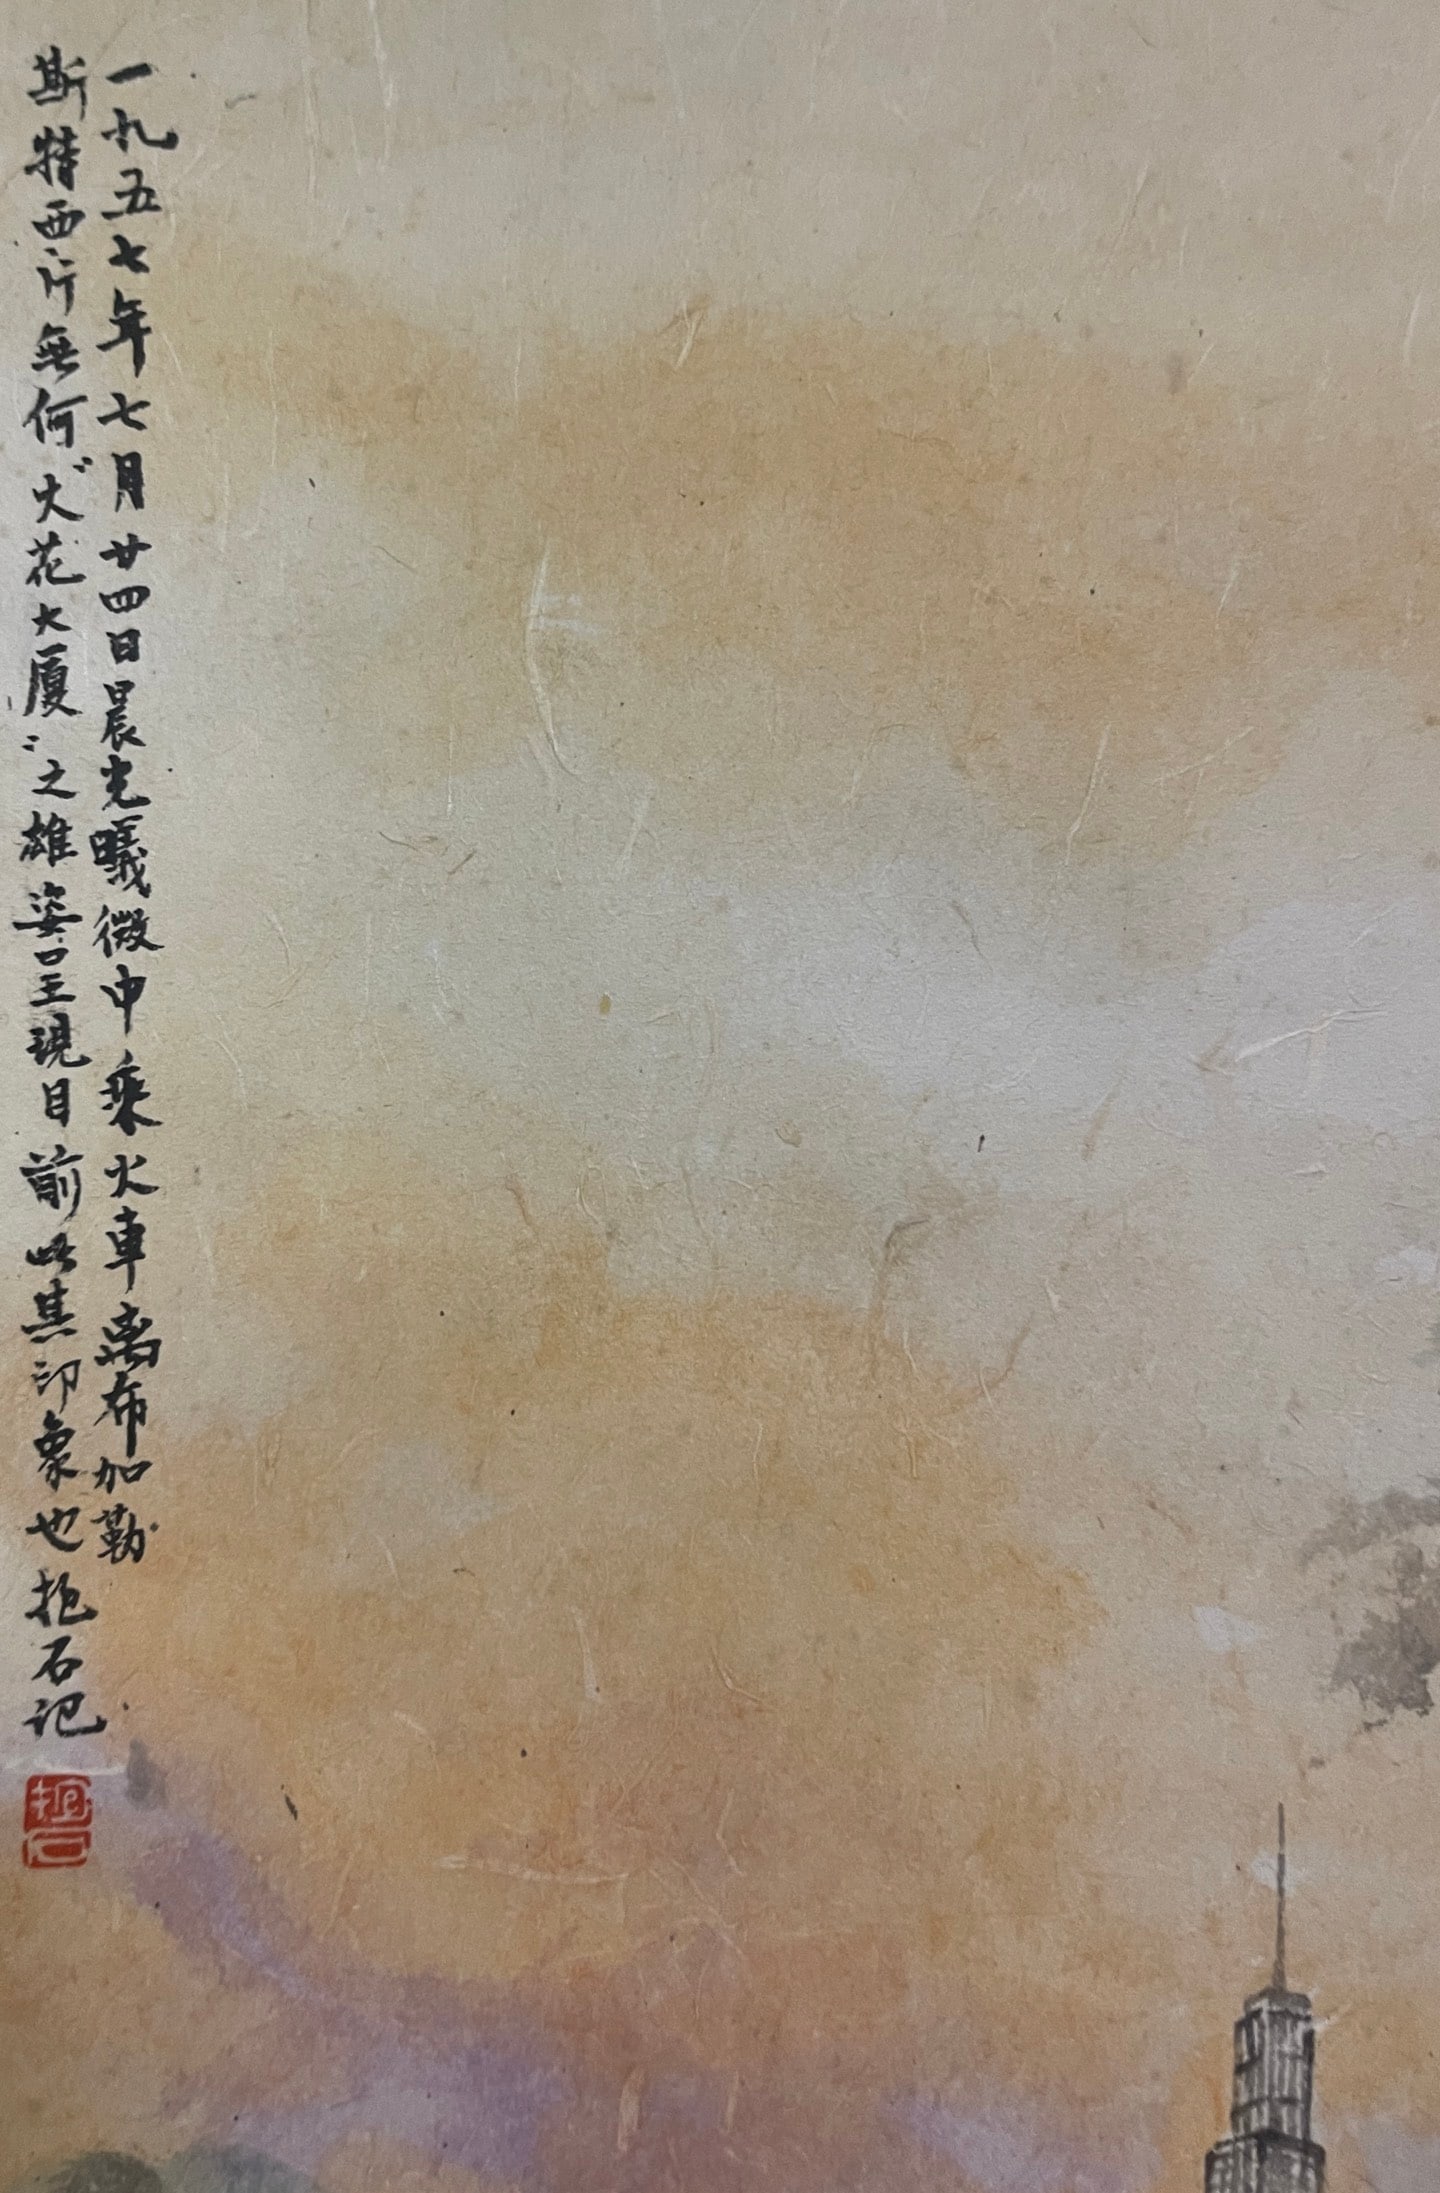 一九五七年七月廿四日晨光曦微中乘火車离布加勒
斯特西行無何"火花大厦"之雄姿呈現目前此其印象也抱石记
抱石